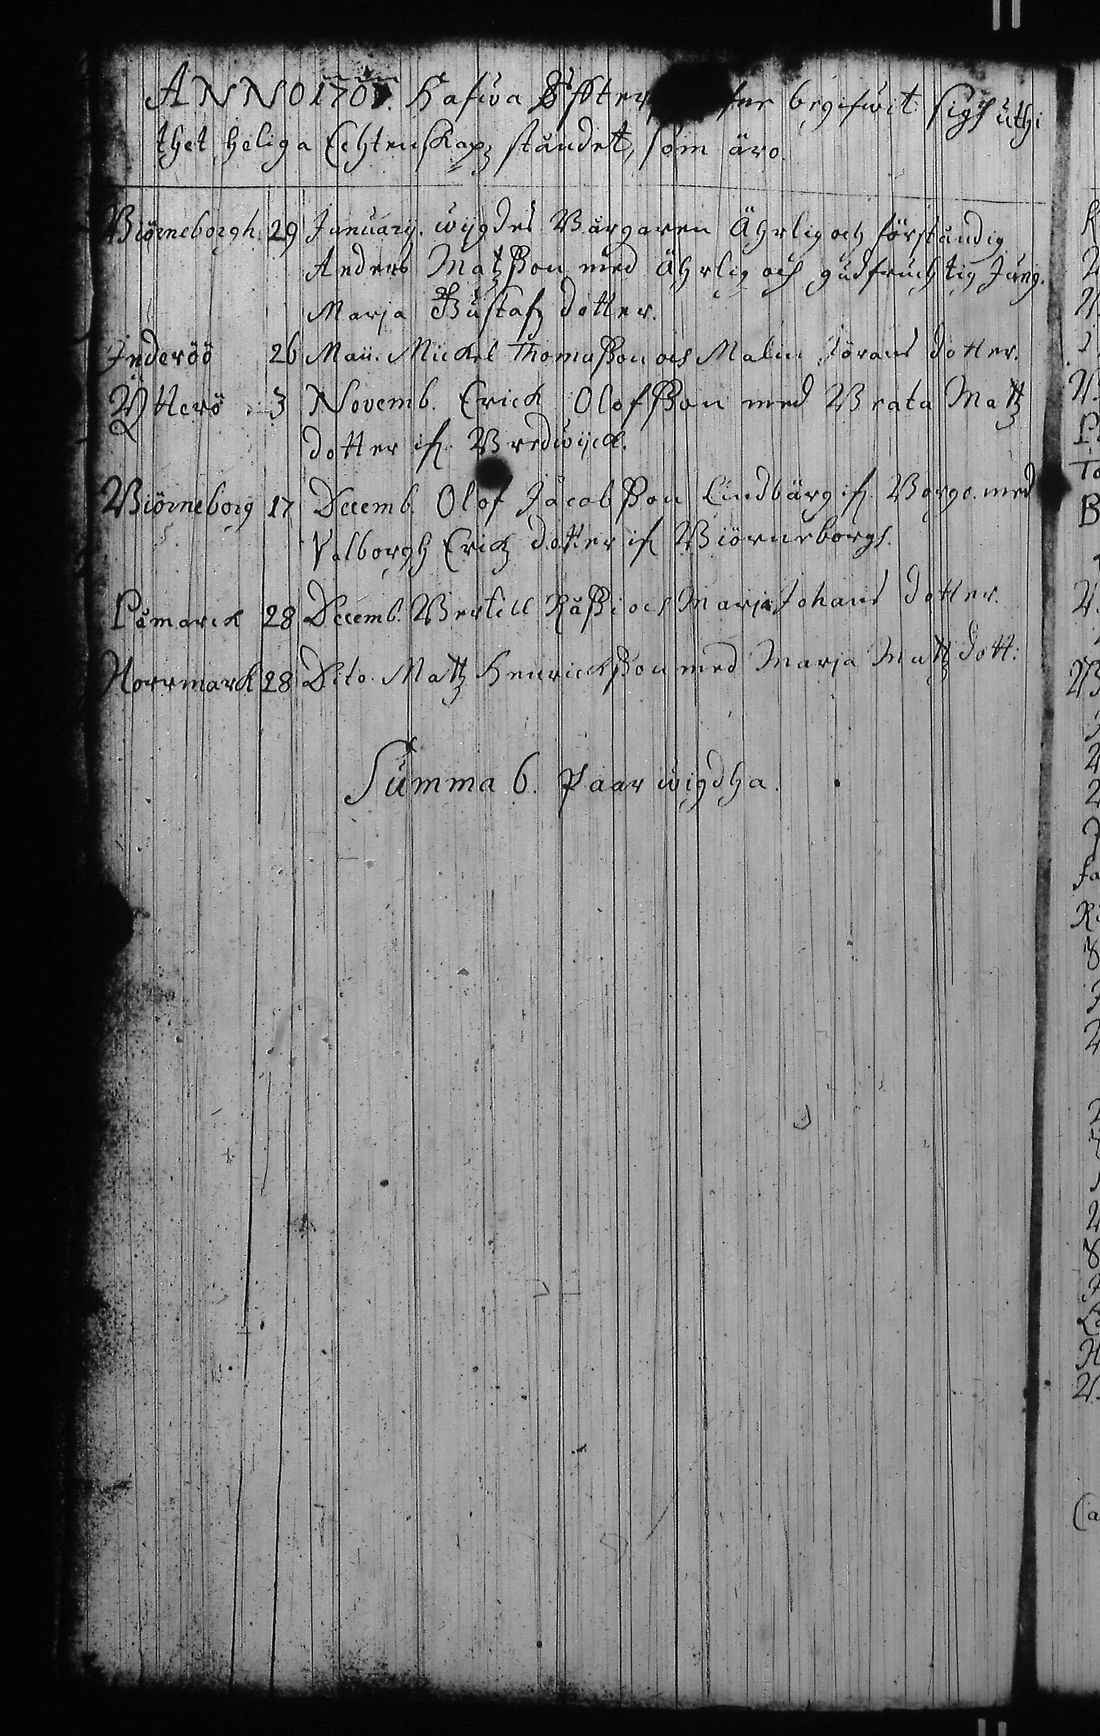 ANNO 170 . Hafwa Effter begifwit sigh uthi
thet heliga Echtenskapz ståndet, som äro.
Biörneborgh. 29 January. wijgdes Bårgaren Ährlig och förståndig
Anders Matzßon med Ährlig och gudfruchtig Jung.
Marja Gustafz dotter.
Inderöö 26 Maii. Mickel Thomaßon och Malin Jörans dotter.
Ytterö 3 Novemb. Erick Olofßon med Brata Matz
dotter if. Bredwijck.
Biörneborg 17 Decemb. Olof Jacobßon Lindbärg if. Borgo. med
Valborgh Erichz dotter if Biörneborgh.
Påmarck 28 Decemb. Bertill Råßi och Marja Johans dotter.
Norrmark 28 Dito. Matz Henrickßon med Marja Matz dott:
Summa 6. Paar wigdha.